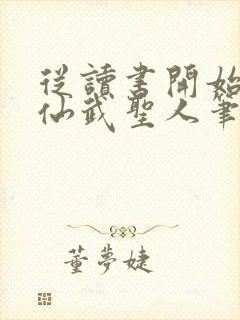 從讀書開始
仙武聖人筆
董夢婕